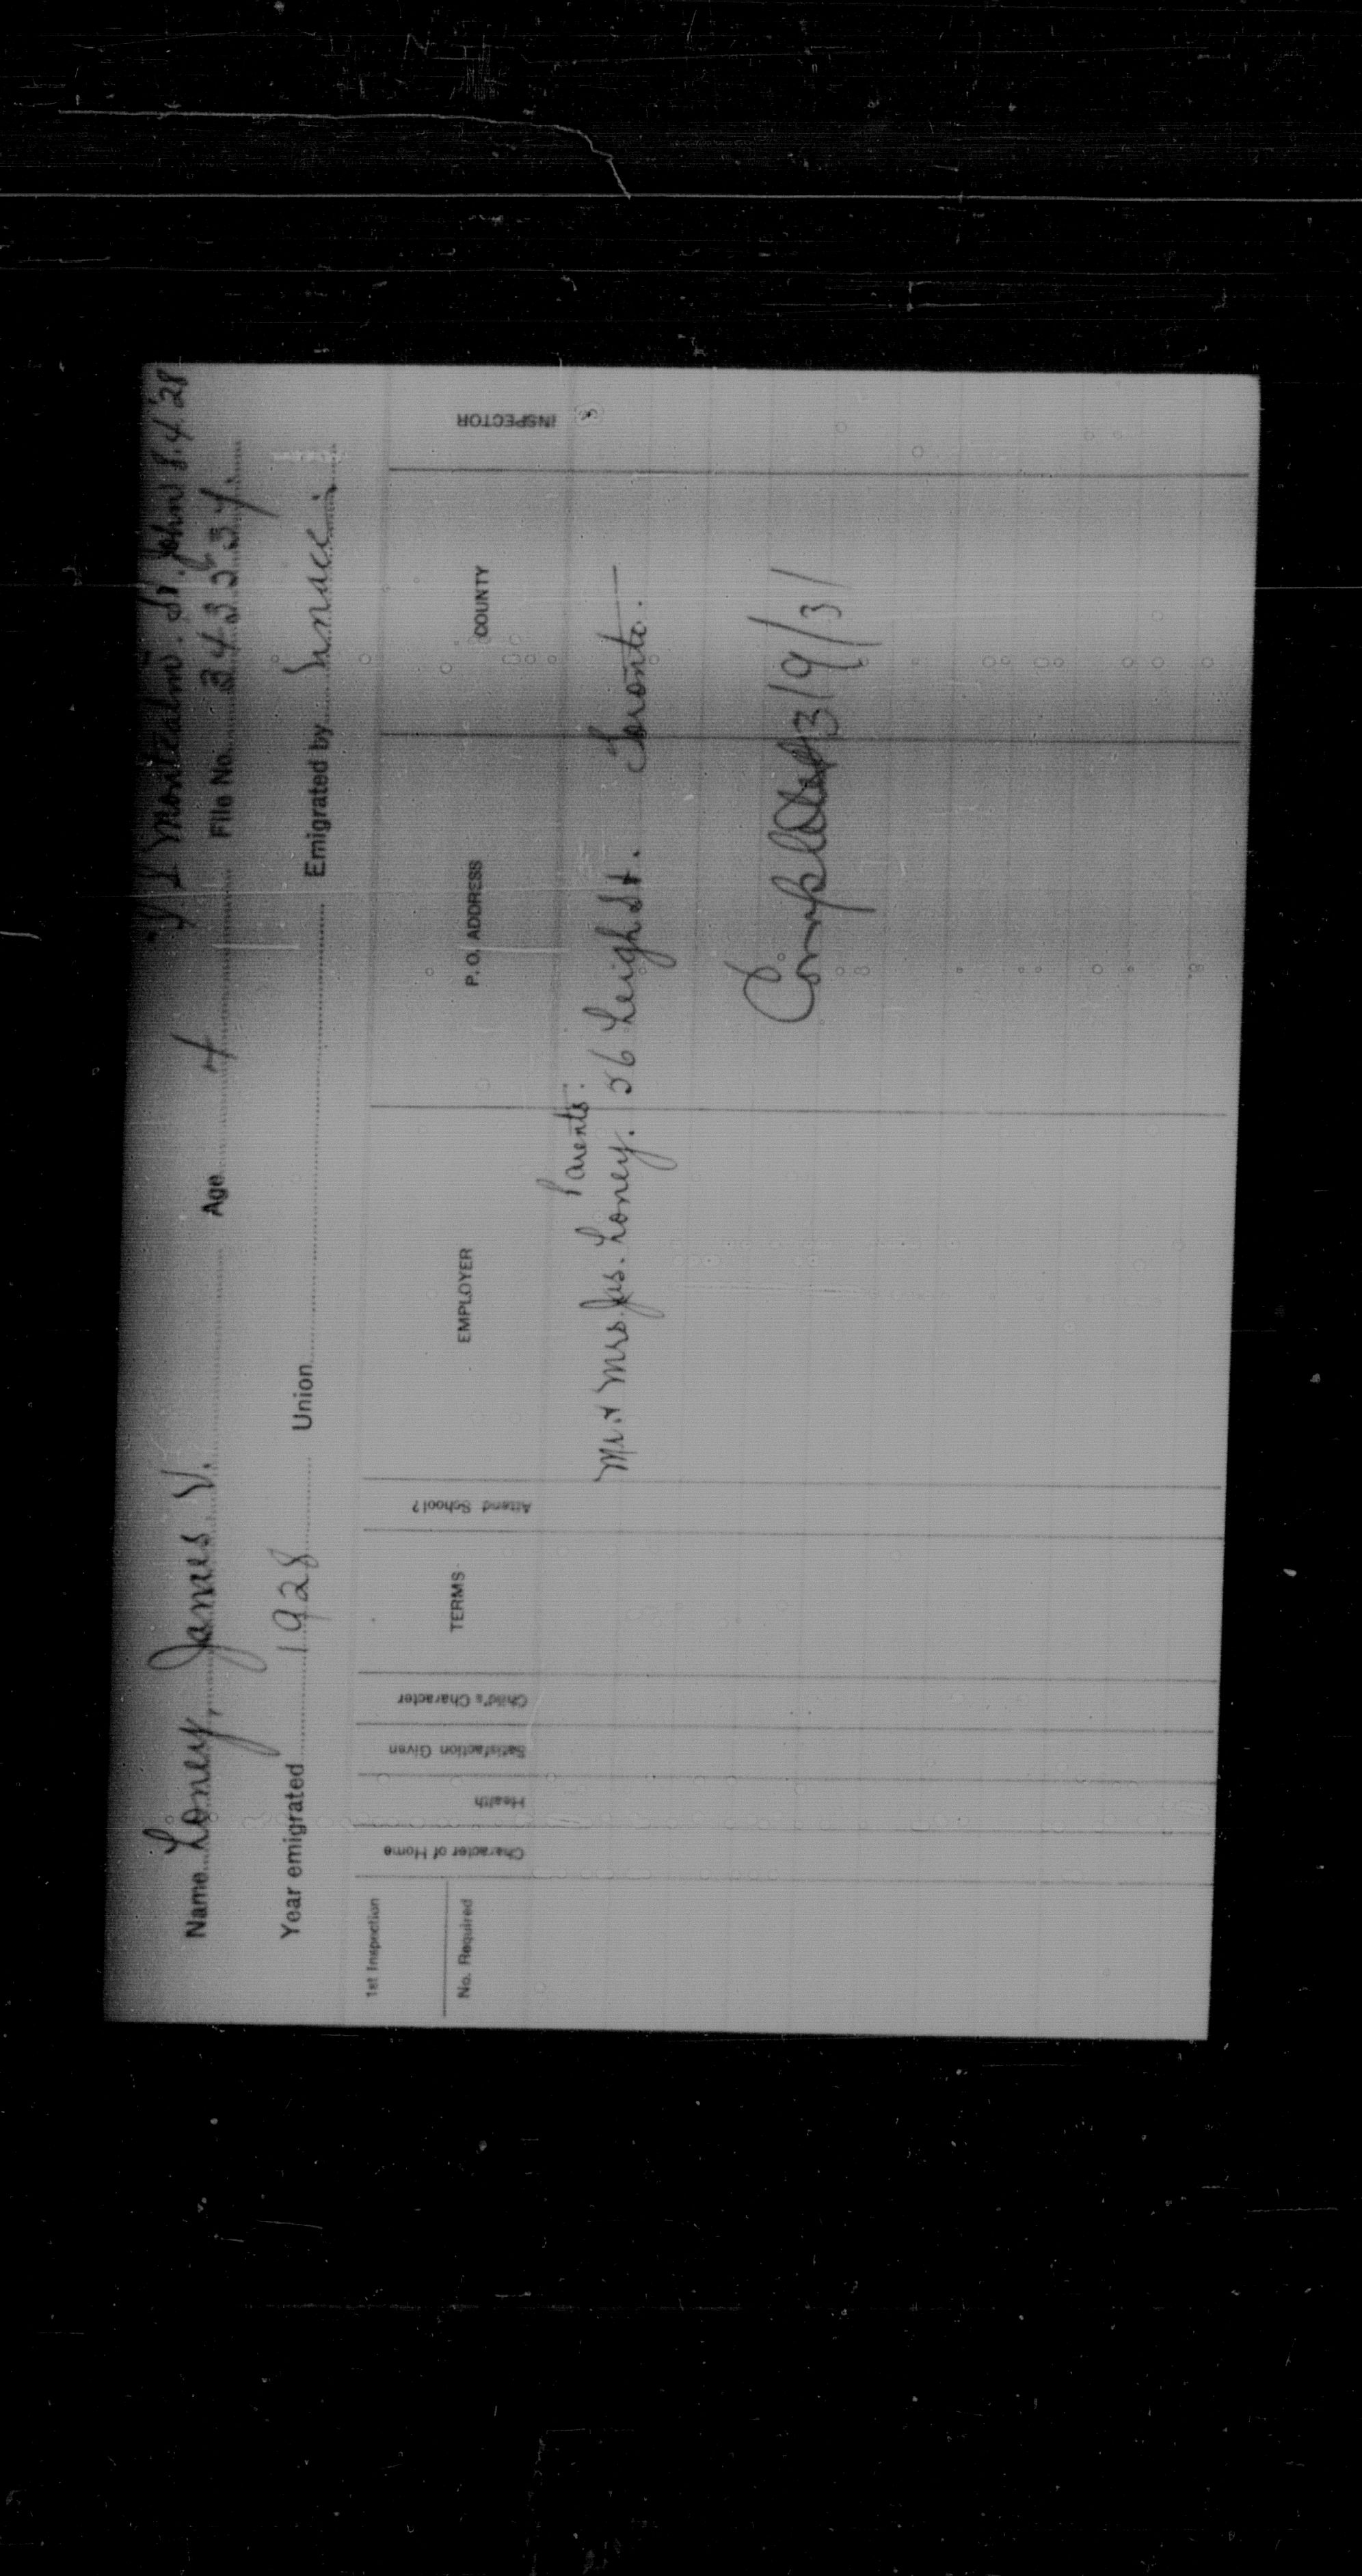 S.S. Montcalm. St. John 8.4.'28
Name Loney, James V. Age 4 File No.
Year emigrated 1928 Union Emigrated by
1st Inspection
No. Required
Character of Home
Health
Satisfaction Given
Child's Character
TERMS
Attend School?
EMPLOYER
P. O. ADDRESS
COUNTY
INSPECTOR
Parents.
Mr. & Mrs. Jas. Loney. 26 Leigh St. Toronto.
Completed 3/9/31